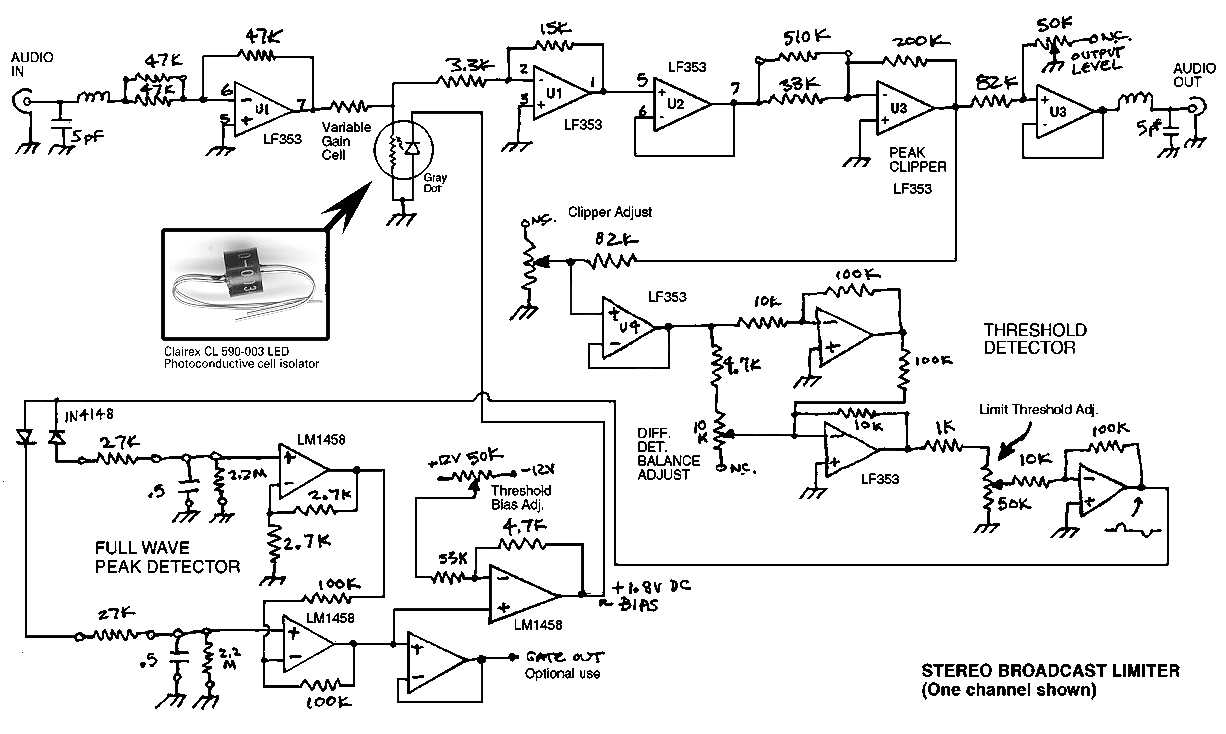 AUDIO
IN
47K
47K
5pF
47K
6
5
U1
7
LF353
Variable
Gain
Cell
Gray
Dot
3.3K
15K
2
3
U1
1
LF353
LF353
5
6
U2
7
510K
33K
200K
U3
PEAK
CLIPPER
LF353
82K
50K
N.C.
OUTPUT
LEVEL
U3
AUDIO
OUT
5pF
N.C.
Clipper Adjust
82K
LF353
U4
Clairex CL 590-003 LED
Photoconductive cell isolator
10K
100K
100K
THRESHOLD
DETECTOR
4.7K
DIFF.
DET.
BALANCE
ADJUST
10
K
N.C.
10K
LF353
1K
Limit Threshold Adj.
50K
10K
100K
1N4148
27K
.5
2.2M
LM1458
2.7K
2.7K
FULL WAVE
PEAK DETECTOR
+12V
50K
-12V
Threshold
Bias Adj.
4.7K
53K
LM1458
+1.8V DC
BIAS
27K
.5
2.2
M
100K
LM1458
100K
GATE OUT
Optional use
STEREO BROADCAST LIMITER
(One channel shown)